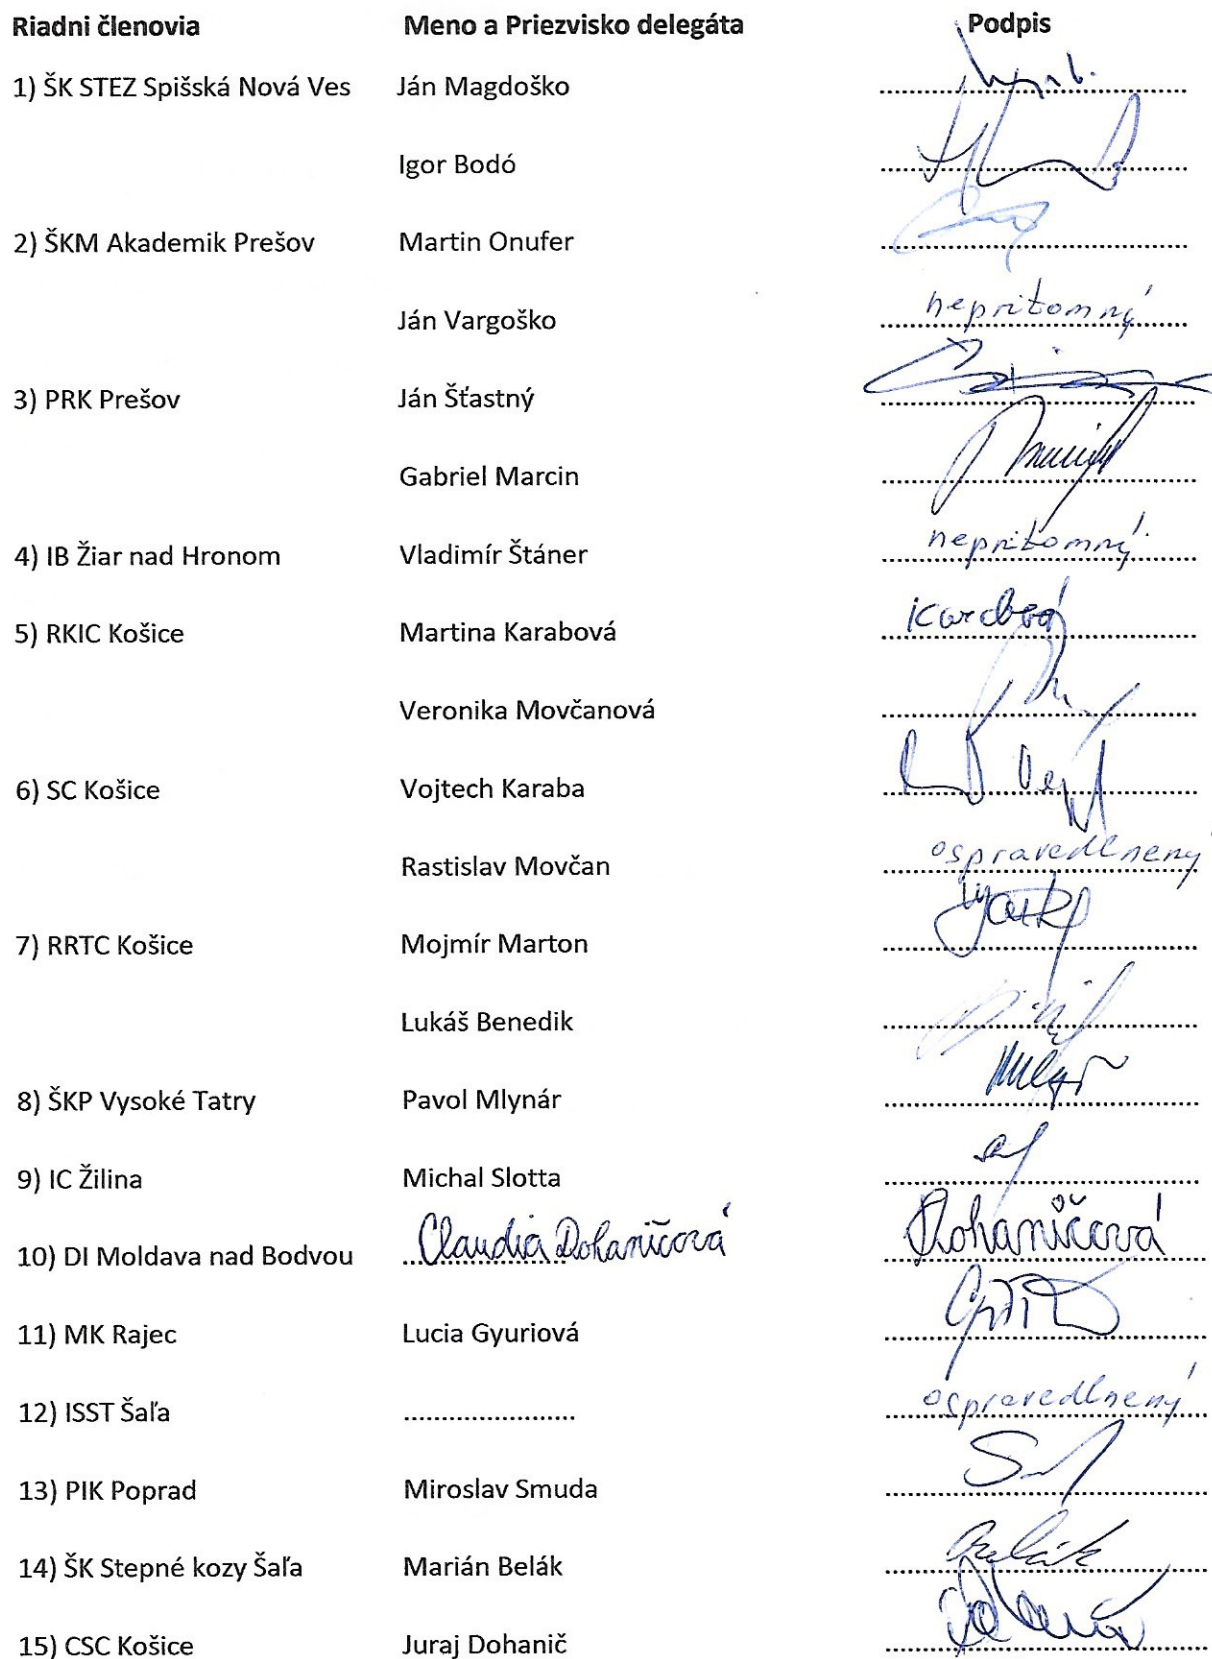 Riadni členovia Meno a Priezvisko delegáta Podpis
1) ŠK STEZ Spišská Nová Ves Ján Magdoško
Igor Bodó
2) ŠKM Akademik Prešov Martin Onufer
Ján Vargoško neprítomný
3) PRK Prešov Ján Šťastný
Gabriel Marcin
4) IB Žiar nad Hronom Vladimír Štáner neprítomný
5) RKIC Košice Martina Karabová
Veronika Movčanová
6) SC Košice Vojtech Karaba
Rastislav Movčan ospravedlnený
7) RRTC Košice Mojmír Marton
Lukáš Benedik
8) ŠKP Vysoké Tatry Pavol Mlynár
9) IC Žilina Michal Slotta
10) DI Moldava nad Bodvou Claudia Dohaničová Dohaničová
11) MK Rajec Lucia Gyuriová
12) ISST Šaľa ....................... ospravedlnený
13) PIK Poprad Miroslav Smuda
14) ŠK Stepné kozy Šaľa Marián Belák Belák
15) CSC Košice Juraj Dohanič